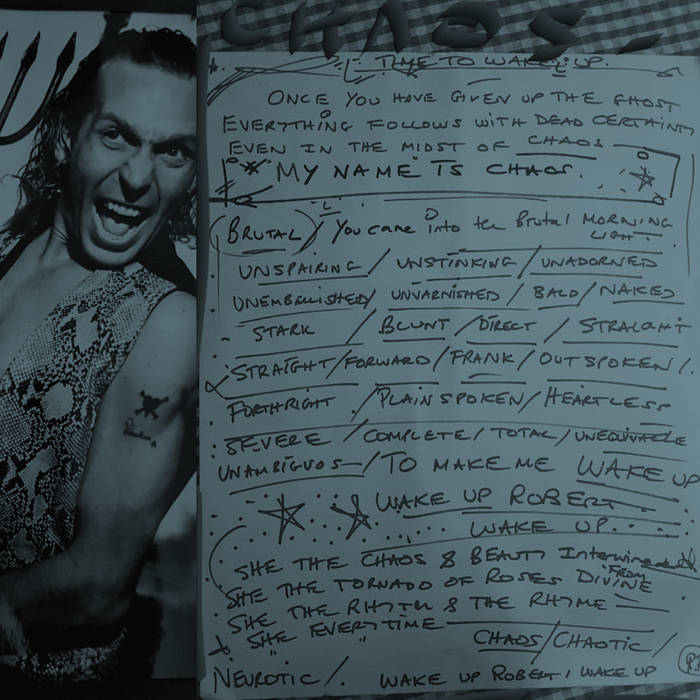 CHAOS
TIME TO WAKE UP.
ONCE YOU HAVE GIVEN UP THE GHOST
EVERYTHING FOLLOWS WITH DEAD CERTAINTY
EVEN IN THE MIDST OF CHAOS
MY NAME IS CHAOS.
BRUTAL / You came into the Brutal MORNING
LIGHT.
UNSPAIRING / UNSTINKING / UNADORNED
UNEMBELLISHED / UNVARNISHED / BALD / NAKED
STARK / BLUNT / DIRECT / STRAIGHT
STRAIGHT / FORWARD / FRANK / OUTSPOKEN /.
FORTHRIGHT / PLAIN SPOKEN / HEARTLESS
SEVERE / COMPLETE / TOTAL /
UNAMBIGUOS / TO MAKE ME WAKE UP
WAKE UP ROBERT.
WAKE UP.
SHE THE CHAOS & BEAUTY
FROM
SHE THE TORNADO OF ROSES DIVINE
SHE THE RHYTH & THE RHYME
SHE EVERYTIME
CHAOS / CHAOTIC /
NEUROTIC /. WAKE UP ROBERT, WAKE UP